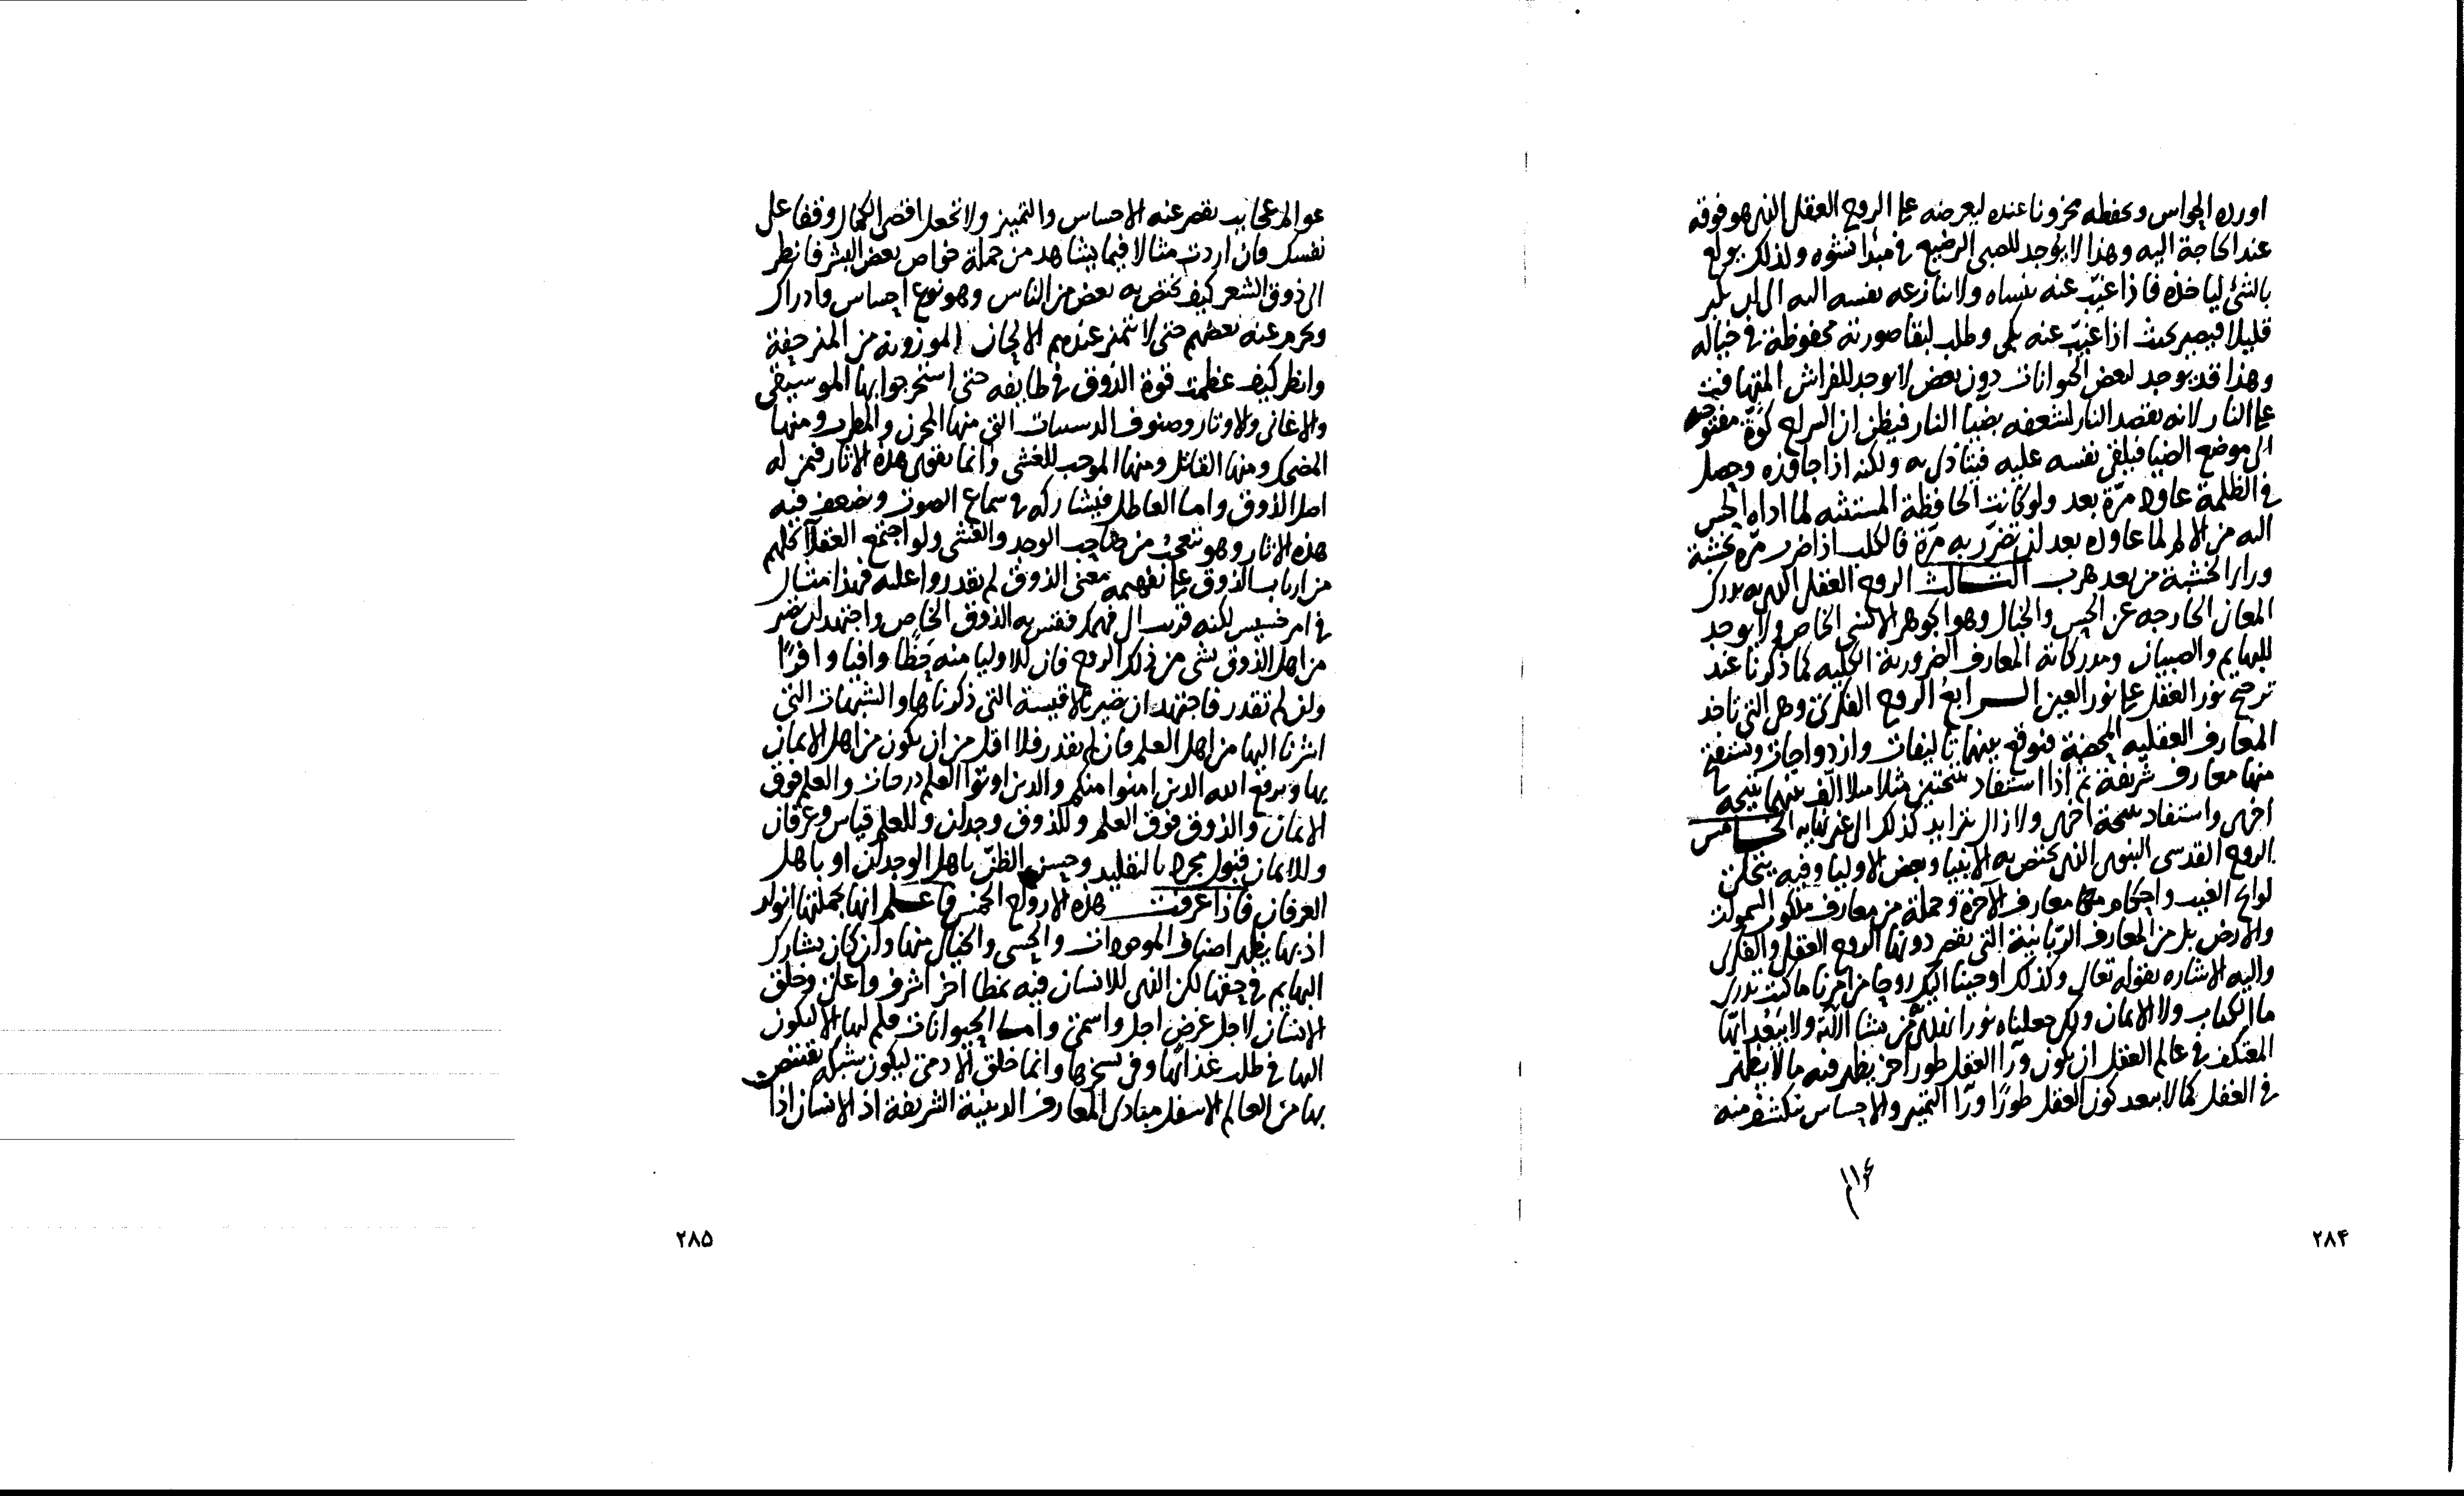 اورده الحواس ويحفظه مخزونا عنده ليعرضه على الروح العقلى الذى هو فوقه
عند الحاجة اليه وهذا لا يوجد للصبى الرضيع فى مبدا نشوه ولذلك يولع
بالشئ لياخذه فاذا غيّب عنه ينساه ولا تنازعه نفسه اليه الى ان يكبر
قليلا فيصير بحيث اذا غيّب عنه بكى وطلب لبقا صورته محفوظة فى خياله
وهذا قد يوجد لبعض الحيوانات دون بعض لا يوجد للفراش المتهافت
على النار لانه يقصد النار لشغفه بضيا النار فيظن ان السراج كوّة مفتوحة
الى موضع الضيا فيلقى نفسه عليه فيتاذى به ولكنه اذا جاوزه وحصل
فى الظلمة عاوده مرّة بعد ولو كانت الحافظة المستثبته لما اداه الحس
اليه من الالم لما عاوده بعد ان تضرّر به مرّة فالكلب اذا ضرب مرّه بخشبة
وراى الخشبة من بعد هرب الثالث الروح العقلى الذى به يدرك
المعانى الخارجه عن الحس والخيال وهو الجوهر الانسى الخاص ولا يوجد
للبهايم والصبيان ومدركاته المعارف الضرورية الكليه كما ذكرنا عند
ترجيح نور العقل على نور العين الرابع الروح الفكرى وهى التى تاخذ
المعارف العقليه المحضة فتوقع بينهما تاليفات وازدواجات وتستفيد
منها معارف شريفة ثم اذا استفاد نتيجتين مثلا الّف بينهما نتيجه
اخرى واستفاد نتيجة اخرى ولا زال يتزايد كذلك الى غير نهايه الخامس
الروح القدسى النبوى الذى يختص به الانبيا وبعض الاوليا وفيه يتجلى
لوايح الغيب واحكام معارف الآخرة وجملة من معارف ملكوت السموات
والارض بل من المعارف الرّبانيّة التى يقصر دونها الروح العقلى والفكرى
واليه الاشاره بقوله تعالى وكذلك اوحينا اليك روحا من امرنا ما كنت تدرى
ما الكتاب ولا الايمان ولكن جعلناه نورا نهدى به من نشا الآيه ولا يبعد ايّها
المعتكف فى عالم العقل ان يكون ورآ العقل طور اخر يظهر فيه ما لا يظهر
فى العقل كما لا يبعد كون العقل طورًا ورآ التمييز والاحساس ينكشف منه
٢٨۴
عوالم عجايب يقصر عنه الاحساس والتمييز ولا تجعل اقصى الكمال وقفا على
نفسك فان اردت مثالا فيما يشاهد من جملة خواص بعض البشر فانظر
الى ذوق الشعر كيف يختص به بعض من الناس وهو نوع احساس وادراك
ويحرم عنه بعضهم حتى لا تتميز عندهم الالحان الموزونة من المنزحفة
وانظر كيف عظمت قوة الذوق فى طايفه حتى استخرجوا بها الموسيقى
والاغانى والاوتار وصنوف الدستانات التى منها المحزن والمطرب ومنها
المضحك ومنها القاتل ومنها الموجب للغشى وانما يقوى هذه الاثار فمن له
اصل الذوق واما العاطل فيشاركه فى سماع الصوت ويضعف فيه
هذه الاثار وهو يتعجب من صاحب الوجد والغشى ولو اجتمع العقلآ كلهم
من ارباب الذوق على تفهيمه معنى الذوق لم يقدروا عليه فهذا مثال
فى امر خسيس لكنه قريب الى فهمك فقس به الذوق الخاص واجتهد ان تصير
من اهل الذوق بشى من ذلك الروح فان للاوليا منه حظّا وافيا وافرًا
وان لم تقدر فاجتهد ان تصير بالاقيسة التى ذكرناها والتشبيهات التى
اشرنا اليها من اهل العلم فان لم تقدر فلا اقل من ان تكون من اهل الايمان
بها ويرفع الله الذين امنوا منكم والذين اوتوا العلم درجات والعلم فوق
الايمان والذوق فوق العلم وللذوق وجدان وللعلم قياس وعرفان
وللايمان قبول مجرد بالتقليد وحسن الظنّ باهل الوجدان او باهل
العرفان فاذا عرفت هذه الارواح الخمس فاعلم انها بجملتها انوار
اذ بها يظهر اصناف الموجودات والحسى والخيالى منها وان كان يشارك
البهايم فى جنسها لكن الذى للانسان فيه نمطا اخر اشرف واعلى وخلق
الانسان لاجل غرض اجل واسمى واما الحيوانات فلم لها الا ليكون
اليها فى طلب غذائها وفى تسخرها وانما خلق للادمى ليكون شبكه يقتنص
بها من العالم الاسفل مبادى المعارف الدينية الشريفة اذ الانسان اذا
٢٨۵